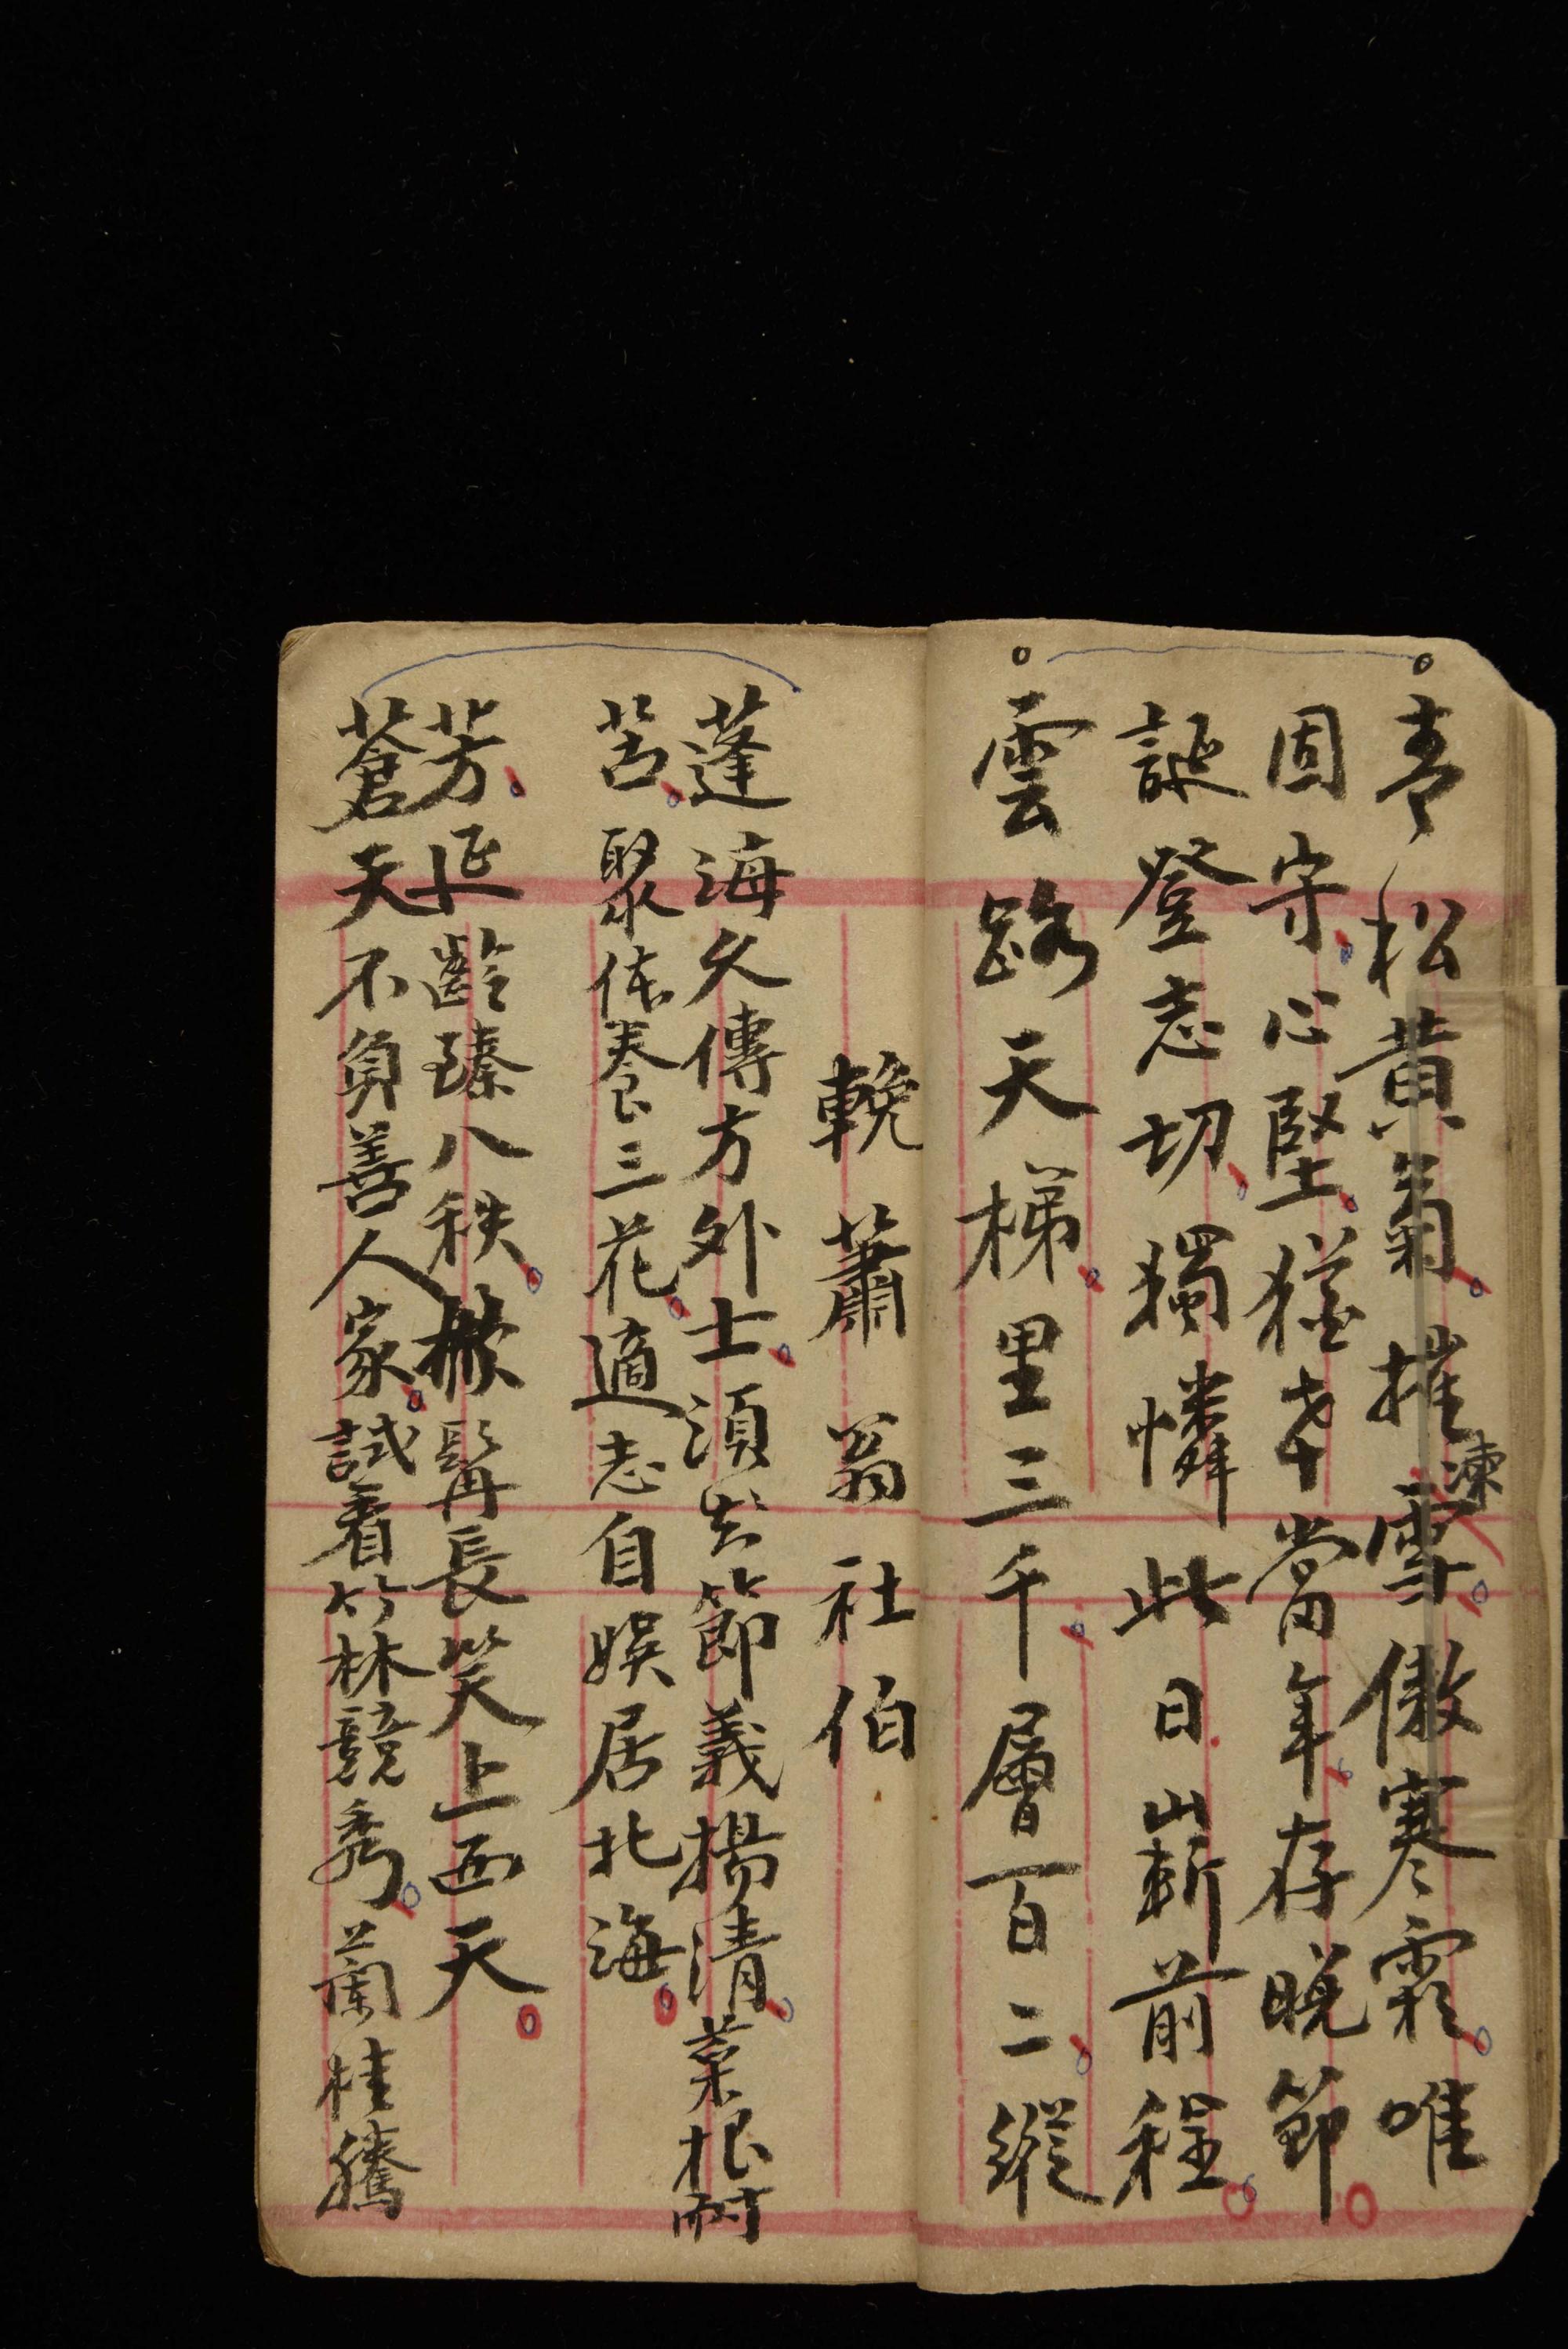 青松黃菊摧凍雪傲寒霜唯
固守心堅猶老當年存晚節
誕登志切獨憐此日嶄前程
雲路天梯里三千層百二縱
輓蕭翁社伯
蓬海久傳方外士須出節義揚清菜根耐
苦聚依養三花適志自娛居北海
芳延齡臻八秩掀髯長笑上西天
蒼天不負善人家試看竹林競秀蘭桂騰